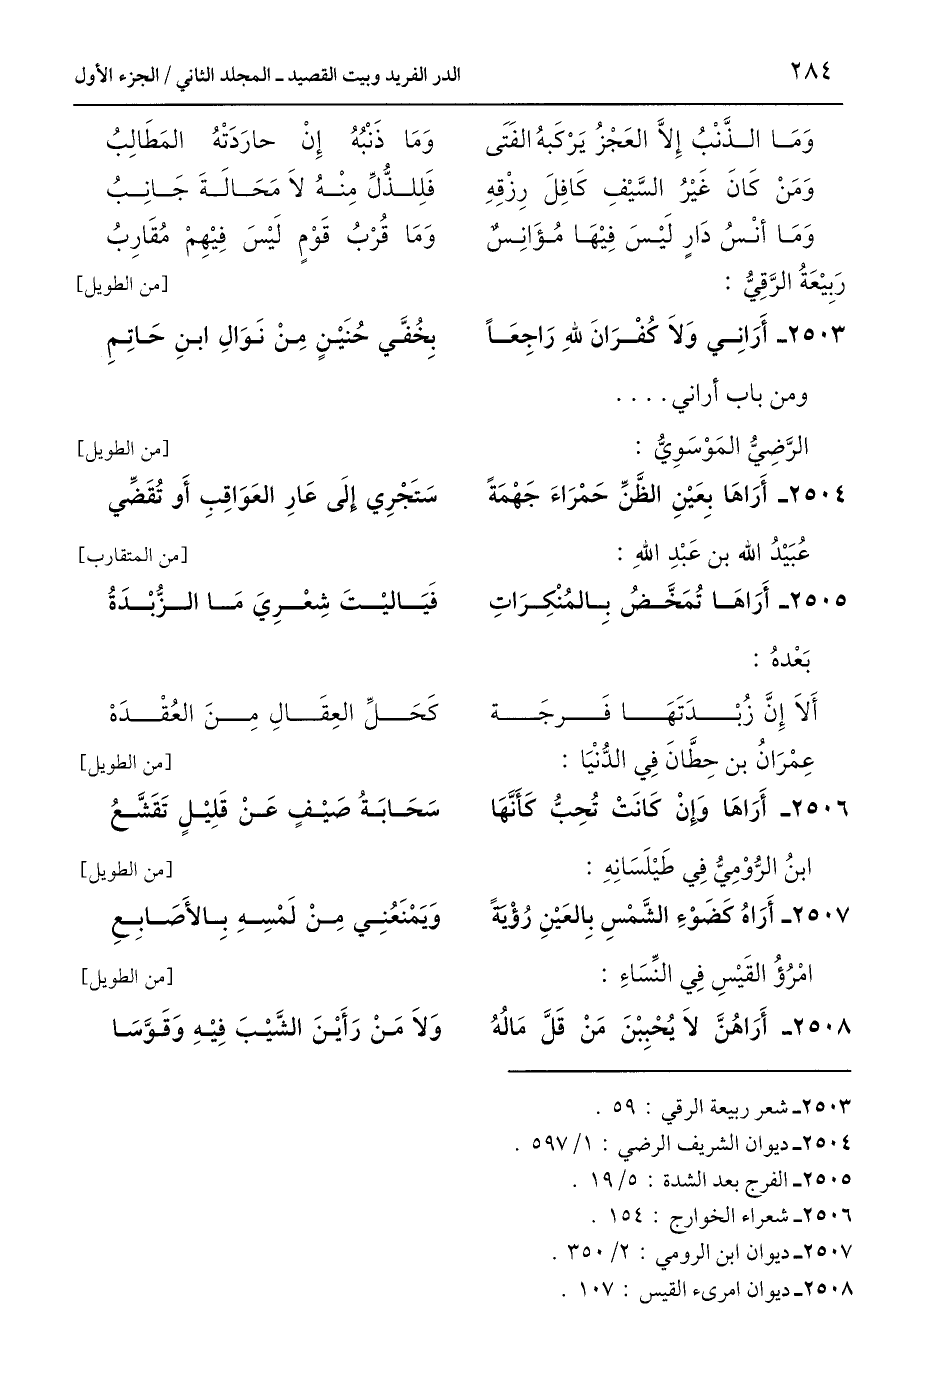 ٢٨٤ الدر الفريد وبيت القصيد ـ المجلد الثاني / الجزء الأول
وَمَا الذَّنْبُ إِلاَّ العَجْزُ يَرْكَبهُ الفَتَى وَمَا ذَنْبُهُ إِنْ حارَدَتْهُ المَطَالِبُ
وَمَنْ كَانَ غَيْرُ السَّيْفِ كَافِلَ رِزْقِهِ فَلِلذُّلِّ مِنْهُ لاَ مَحَالَةَ جَانِبُ
وَمَا أنْسُ دَارٍ لَيْسَ فِيْهَا مُؤَانِسٌ وَمَا قُرْبُ قَوْمٍ لَيْسَ فِيْهِمْ مُقَارِبُ
رَبِيْعَةُ الرَّقِيُّ : [من الطويل]
٢٥٠٣ـ أَرَانِي وَلاَ كُفْرَانَ للهِ رَاجِعَاً بِخُفَّي حُنَيْنٍ مِنْ نَوَالِ ابنِ حَاتِمِ
ومن باب أراني . . . .
الرَّضِيُّ المَوْسَوِيُّ : [من الطويل]
٢٥٠٤ـ أَرَاهَا بِعَيْنِ الظَّنِّ حَمْرَاءَ جَهْمَةً سَتَجْرِي إِلَى عَارِ العَوَاقِبِ أَو تُقَضِّي
عُبَيْدُ الله بن عَبْدِ اللهِ : [من المتقارب]
٢٥٠٥ـ أَرَاهَا تُمَخَّضُ بِالمُنْكِرَاتِ فَيَالَيْتَ شِعْرِيَ مَا الزُّبْدَةُ
بَعْدهُ :
أَلاَ إِنَّ زُبْدَتَهَا فَرجَة كَحَلِّ العِقَالِ مِنَ العُقْدَهْ
عِمْرَانُ بن حِطَّانَ فِي الدُّنْيَا : [من الطويل]
٢٥٠٦ـ أَرَاهَا وَإِنْ كَانَتْ تُحِبُّ كَأَنَّهَا سَحَابَةُ صَيْفٍ عَنْ قَلِيْلٍ تَقَشَّعُ
ابنُ الرُّوْمِيُّ فِي طَيْلَسَانِهِ : [من الطويل]
٢٥٠٧ـ أَرَاهُ كَضَوْءِ الشَّمْسِ بِالعَيْنِ رُؤْيَةً وَيَمْنَعُنِي مِنْ لَمْسِهِ بِالأَصَابِعِ
امْرُؤُ القَيْسِ فِي النِّسَاءِ : [من الطويل]
٢٥٠٨ـ أَرَاهُنَّ لاَ يُحْبِبْنَ مَنْ قَلَّ مَالُهُ وَلاَ مَنْ رَأَيْنَ الشَّيْبَ فِيْهِ وَقَوَّسَا
٢٥٠٣ـ شعر ربيعة الرقي : ٥٩ .
٢٥٠٤ـ ديوان الشريف الرضي : ١/ ٥٩٧ .
٢٥٠٥ـ الفرج بعد الشدة : ٥/ ١٩ .
٢٥٠٦ـ شعراء الخوارج : ١٥٤ .
٢٥٠٧ـ ديوان ابن الرومي : ٢/ ٣٥٠ .
٢٥٠٨ـ ديوان امرىء القيس : ١٠٧ .